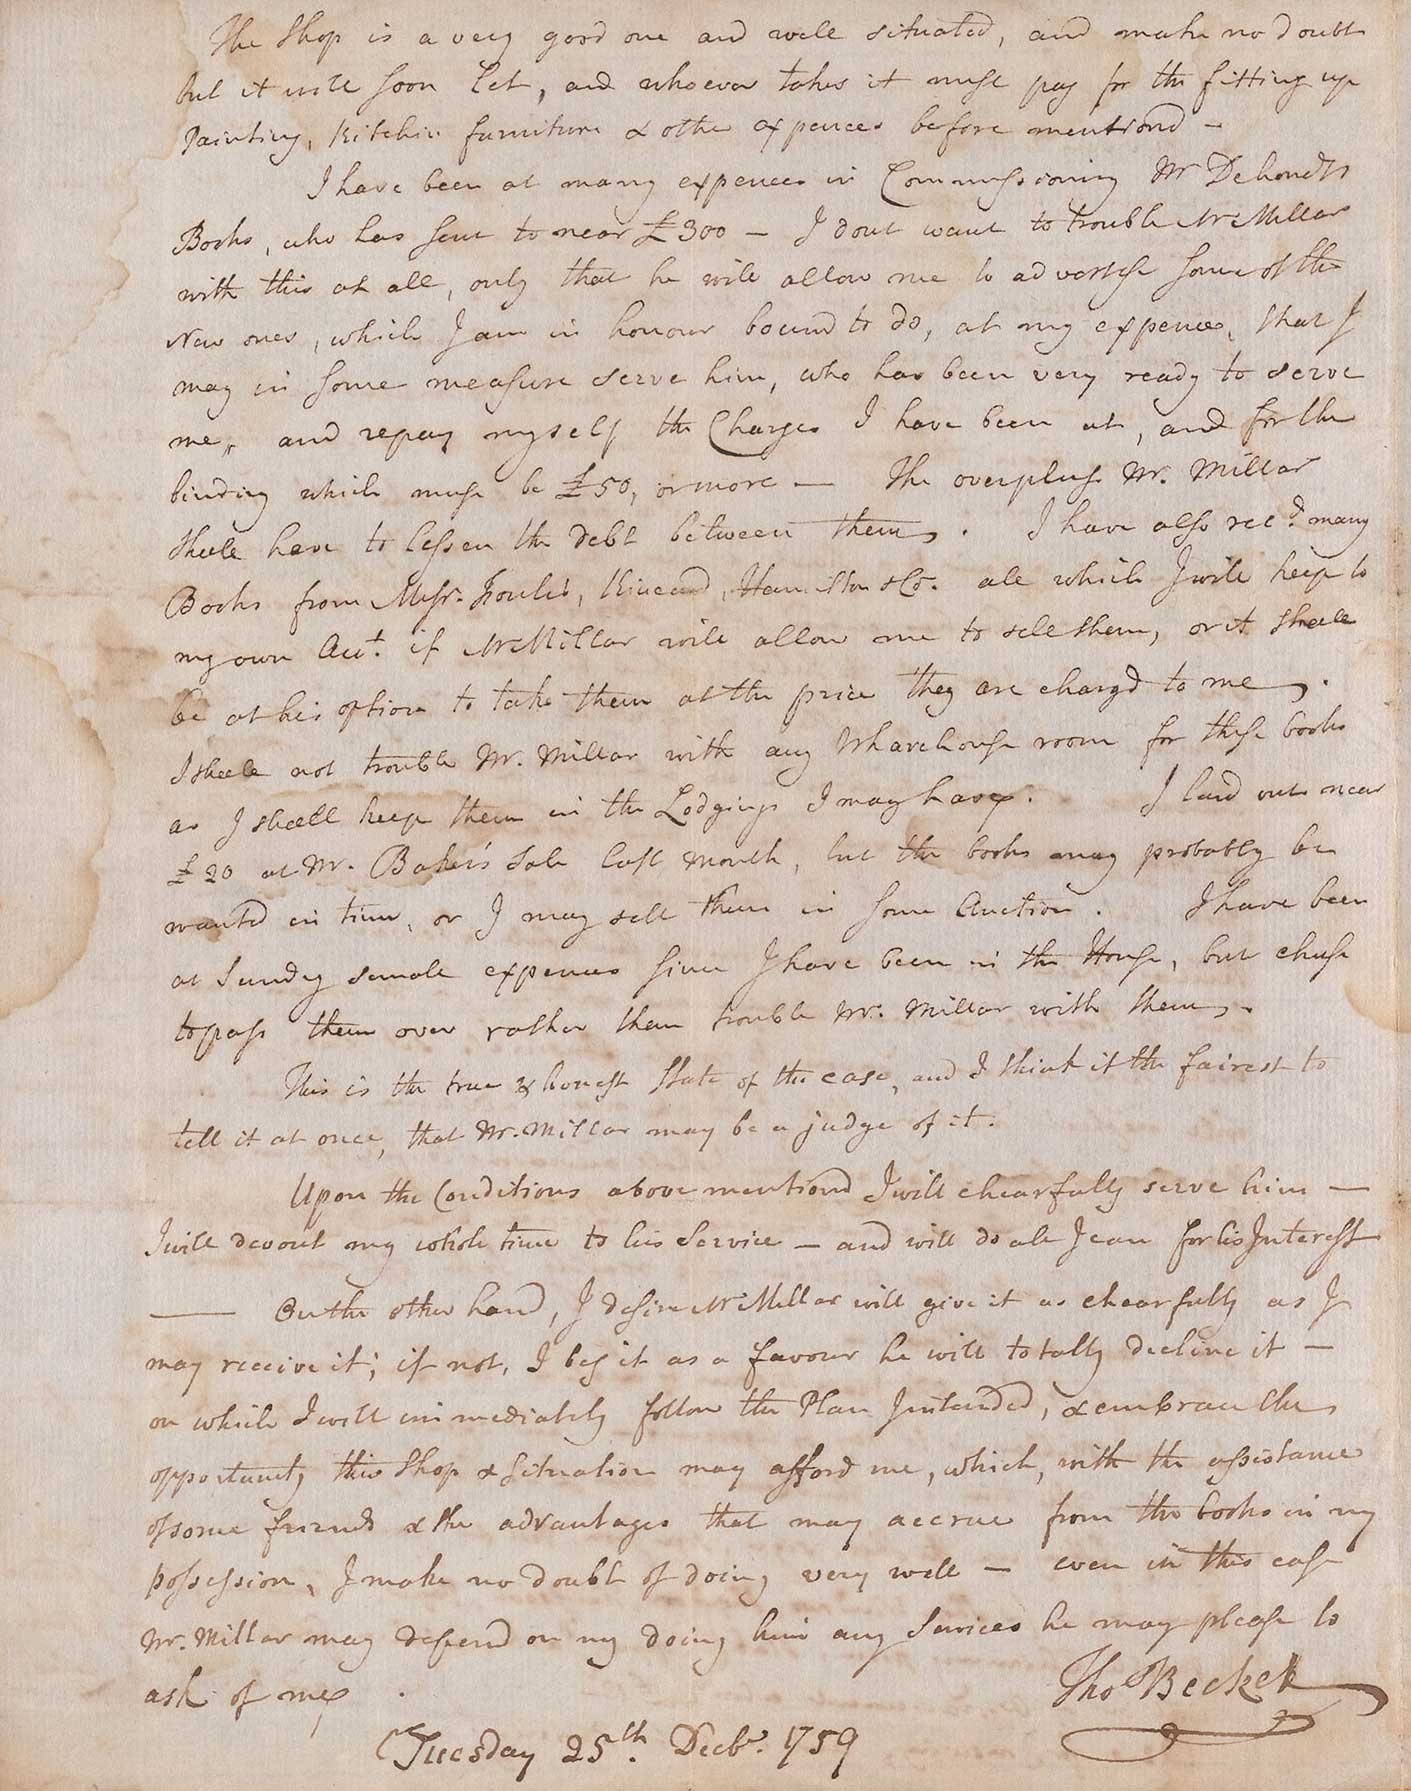 The Shop is a very good one and well situated, and make no doubt
but it will soon let, and whoever takes it must pay for the fitting up
Painting, Kitchin furniture & other expences before mentiond -
I have been at many expences in Commissioning Mr Dehondts
Books, who has sent to near £300 - I dont want to trouble Mr Millar
with this at all, only that he will allow me to advertise some of the
New ones, which I am in honour bound to do, at my expence, that I
may in some measure serve him, who has been very ready to serve
me, and repay myself the Charges I have been at, and for the
binding which must be £50, or more - The overplus Mr. Millar
shall have to lessen the debt between them. I have also recd. many
Books from Messr. Foulis, Kincaid, Hamilton & Co. all which I will keep to
my own Acct. if Mr Millar will allow me to sell them, or it shall
be at his option to take them at the price they are chargd to me.
I shall not trouble Mr. Millar with any Wharehouse room for these books
as I shall keep them in the Lodgings I may have. I laid out near
£20 at Mr. Baker's Sale last Month, but the books may probably be
wanted in time, or I may sell them in some Auction. I have been
at Sundry small expences since I have been in the House, but chuse
to pass them over rather than trouble Mr. Millar with them.
This is the true & honest State of the case, and I think it the fairest to
tell it at once, that Mr. Millar may be a judge of it.
Upon the Conditions above mentiond I will chearfully serve him -
I will devout my whole time to his Service - and will do all I can for his Interest
- On the other hand, I desire Mr Millar will give it as chearfully as I
may receive it; if not, I beg it as a favour he will totally decline it -
on which I will immediately follow the Plan Intended, & embrace the
opportunity this Shop & Situation may afford me, which, with the assistance
of some friends & the advantages that may accrue from the books in my
possession, I make no doubt of doing very well - even in this case
Mr. Millar may depend on my doing him any Services he may please to
ask of me
Thos Becket
Tuesday 25th. Decbr. 1759